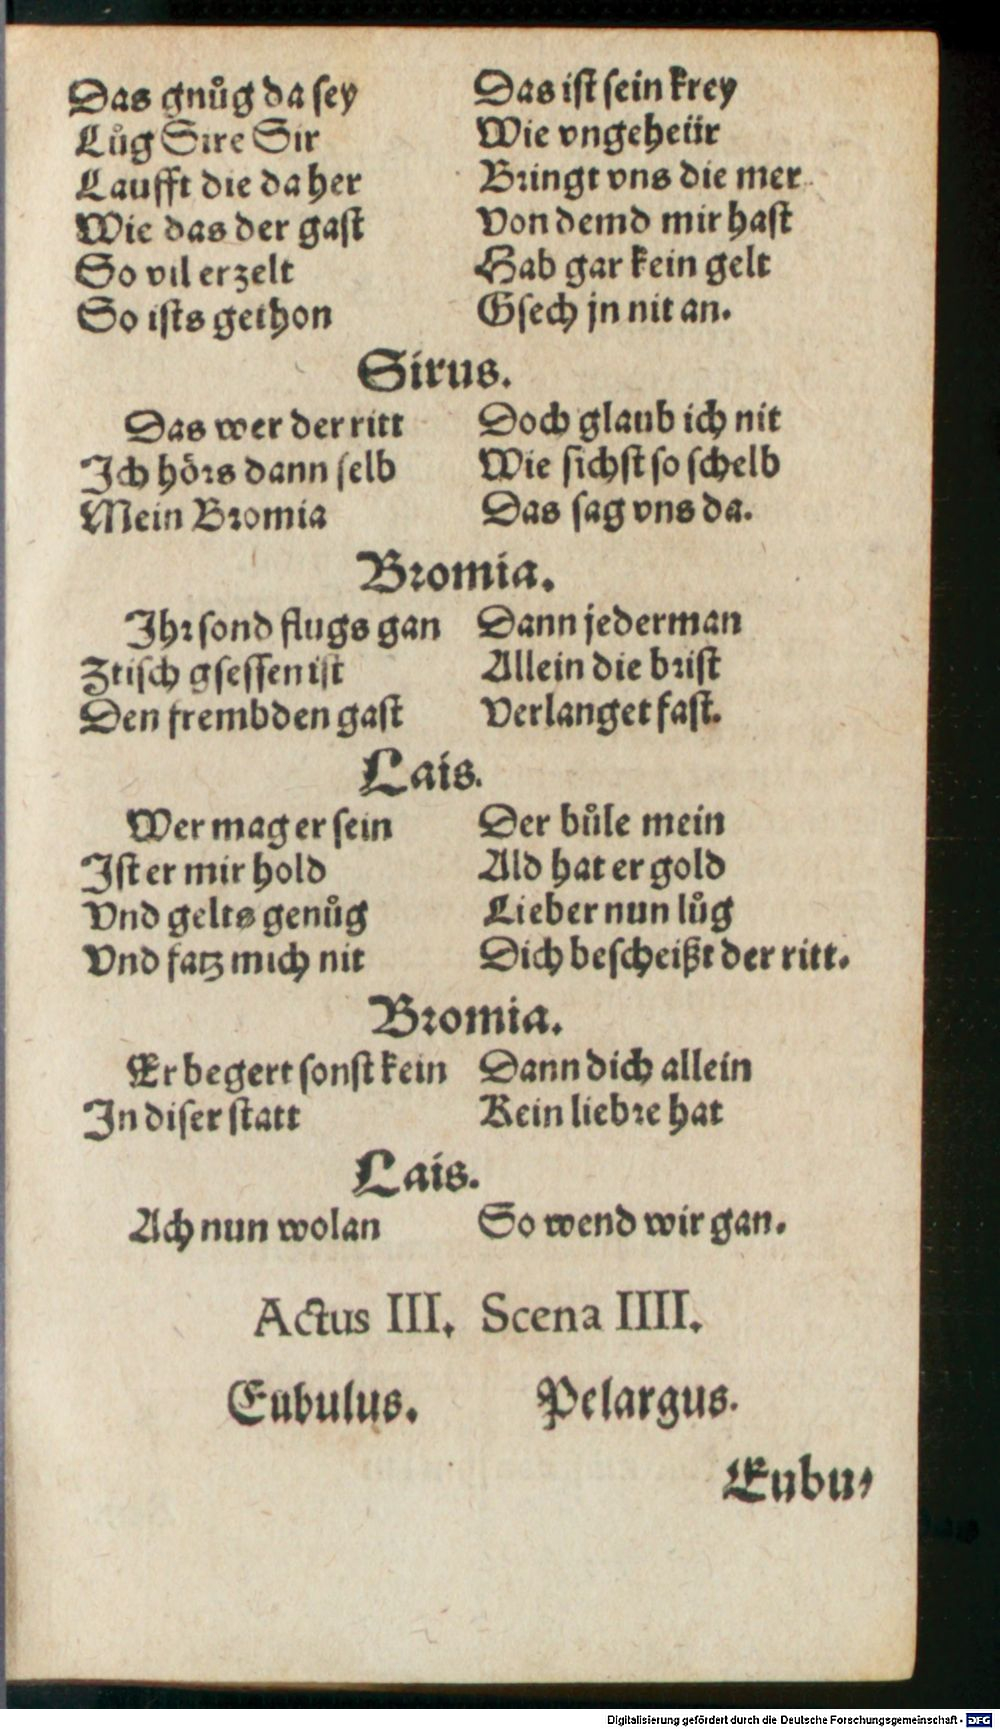 Das gnuͦg da sey Das ist sein krey
Luͦg Sire Sir Wie vngeheür
Laufft die da her Bringt vns die mer
Wie das der gast Von dem d mir hast
So vil erzelt Hab gar kein gelt
So ists gethon Gsech jn nit an.
Sirus.
Das wer der ritt Doch glaub ich nit
Ich hörs dann selb Wie sichst so schelb
Mein Bromia Das sag vns da.
Bromia.
Ihr sond flugs gan Dann jederman
Ztisch gsessen ist Allein die brist
Den frembden gast Verlanget fast.
Lais.
Wer mag er sein Der buͦle mein
Ist er mir hold Ald hat er gold
Vnd gelts genuͦg Lieber nun luͦg
Vnd fatz mich nit Dich bescheißt der ritt.
Bromia.
Er begert sonst kein Dann dich allein
In diser statt Kein liebre hat
Lais.
Ach nun wolan So wend wir gan.
Actus III. Scena IIII.
Eubulus. Pelargus.
Eubu⸗
Digitalisierung gefördert durch die Deutsche Forschungsgemeinschaft - DFG